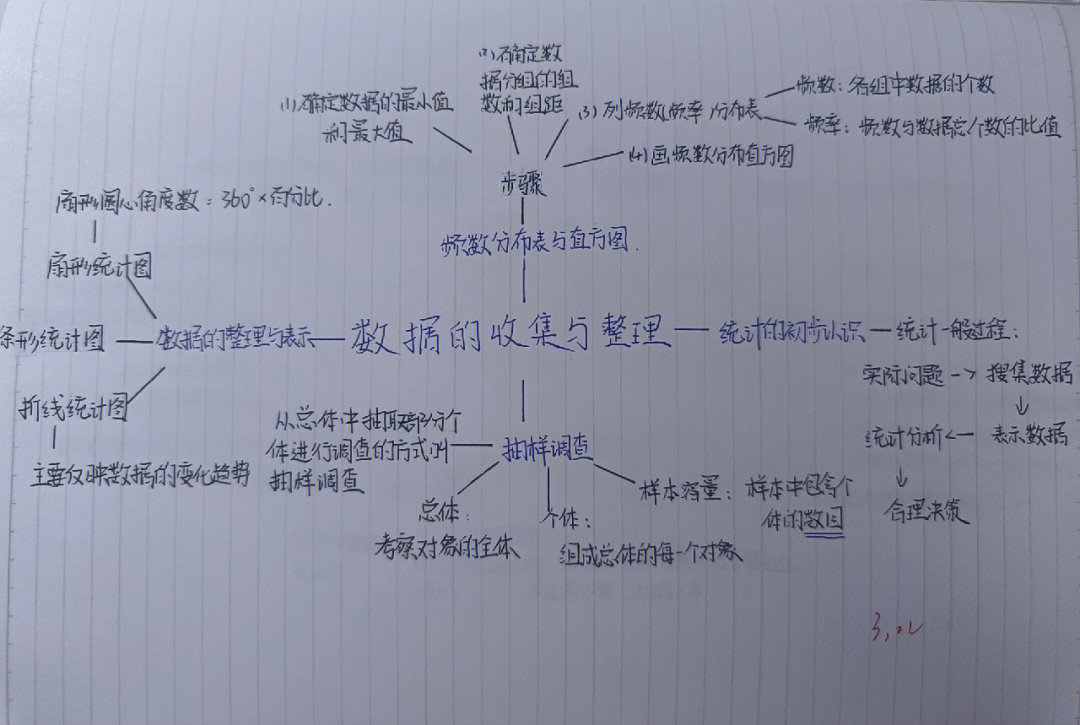 (1)确定数据的最小值
和最大值
(2)确定数
据分组的组
数和组距
(3)列频数(频率)分布表
频数：各组中数据的个数
频率：频数与数据总个数的比值
(4)画频数分布直方图
步骤
频数分布表与直方图.
扇形圆心角度数=360°×百分比.
扇形统计图
条形统计图
数据的整理与表示
折线统计图
主要反映数据的变化趋势
数据的收集与整理
统计的初步认识
统计一般过程：
实际问题→搜集数据
↓
统计分析←表示数据
↓
合理决策
从总体中抽取部分个
体进行调查的方式叫
抽样调查
抽样调查
总体：
考察对象的全体
个体：
组成总体的每一个对象
样本容量：样本中包含个
体的数目
3,